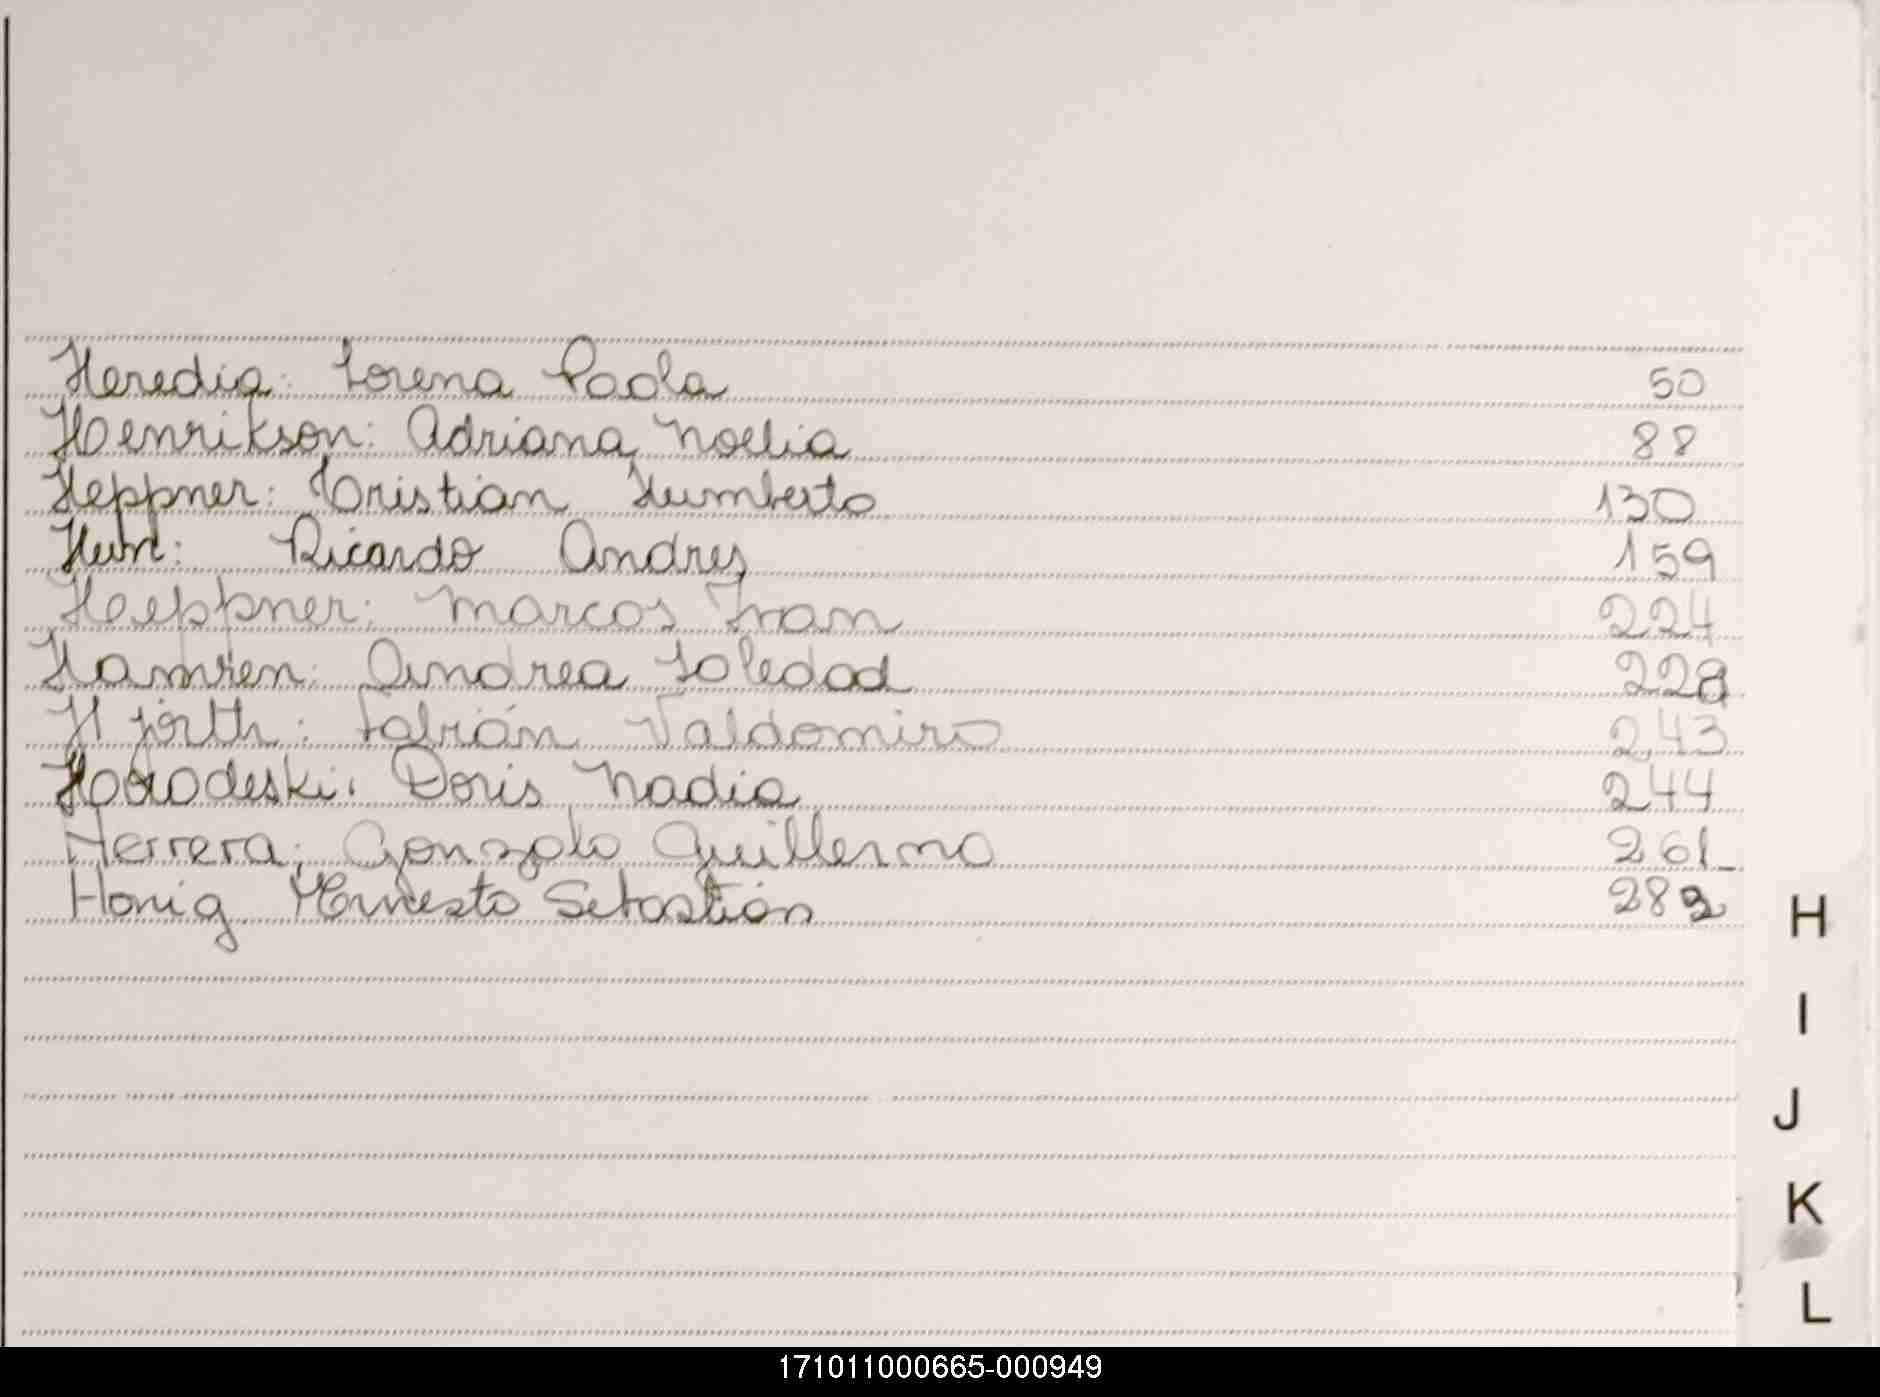 Heredia: Lorena Paola 50
Henrikson: Adriana Noelia 88
Heppner: Cristian Humberto 130
Hun: Ricardo Andres 159
Heppner: Marcos Ivan 224
Hamren: Andrea Soledad 229
Hjörth: Fabián Valdomiro 243
Horodeski: Doris Nadia 244
Herrera; Gonzalo Guillermo 261
Honig Ernesto Sebastián 282
H
I
J
K
L
171011000665-000949